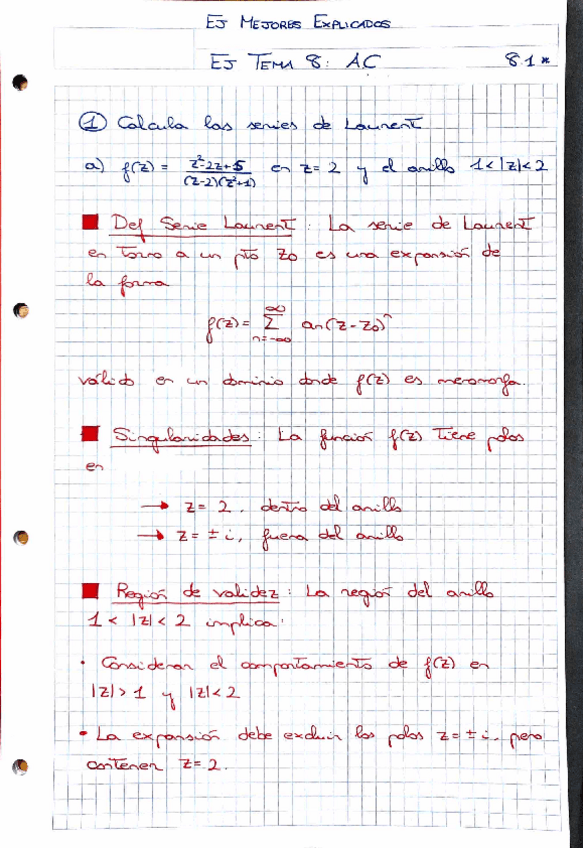 EJ MEJORES EXPLICADOS
EJ TEMA 8: AC 8.1*
① Calcula las series de Laurent
a) f(z) = z²-2z+5 / (z-2)(z²+1) en z=2 y el anillo 1<|z|<2
Def Serie Laurent: La serie de Laurent
en torno a un pto z0 es una expansión de
la forma
f(z) = ∞ Σ n=-∞ an(z-z0)ⁿ
válido en un dominio donde f(z) es meromorfa.
Singularidades: La función f(z) tiene polos
en
→ z = 2, dentro del anillo
→ z = ± i, fuera del anillo
Región de validez: La región del anillo
1 < |z| < 2 implica:
· Considerar el comportamiento de f(z) en
|z| > 1 y |z| < 2
· La expansión debe excluir los polos z = ± i, pero
contener z = 2.